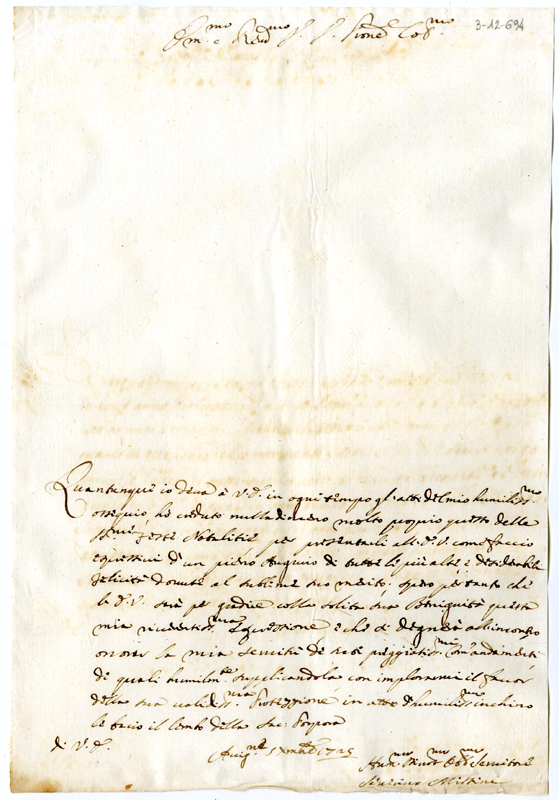 Em.mo e Rev.mo S.r S.r P.rone Col.mo
3-12-694
Quantunque io deva à V.E. in ogni tempo gl'atti del mio humiliss.mo
ossequio, hò creduto nulladimeno molto proprio questo delle
SS.me feste Natalitie per presentarli all'E.V. come faccio
espressivi d'un pieno Augurio di tutte le più alte e desiderabili
felicità dovute al sublime suo merito; spero pertanto che
la E.V. sarà per gradire colla solita sua Benignità questa
mia riverentiss.ma espressione e che si degnerà all'incontro
onorar la mia servitù de suoi preggiatiss.mi Com'andamenti
de quali humilm.te supplicandola con implorarmi il favor
della sua validiss.ma Protezzione in atto d'humiliss.mo inchino
le bacio il lembo della Sac: Porpora
di V.E.
1725
Hum.mo Obb.mo Servitore